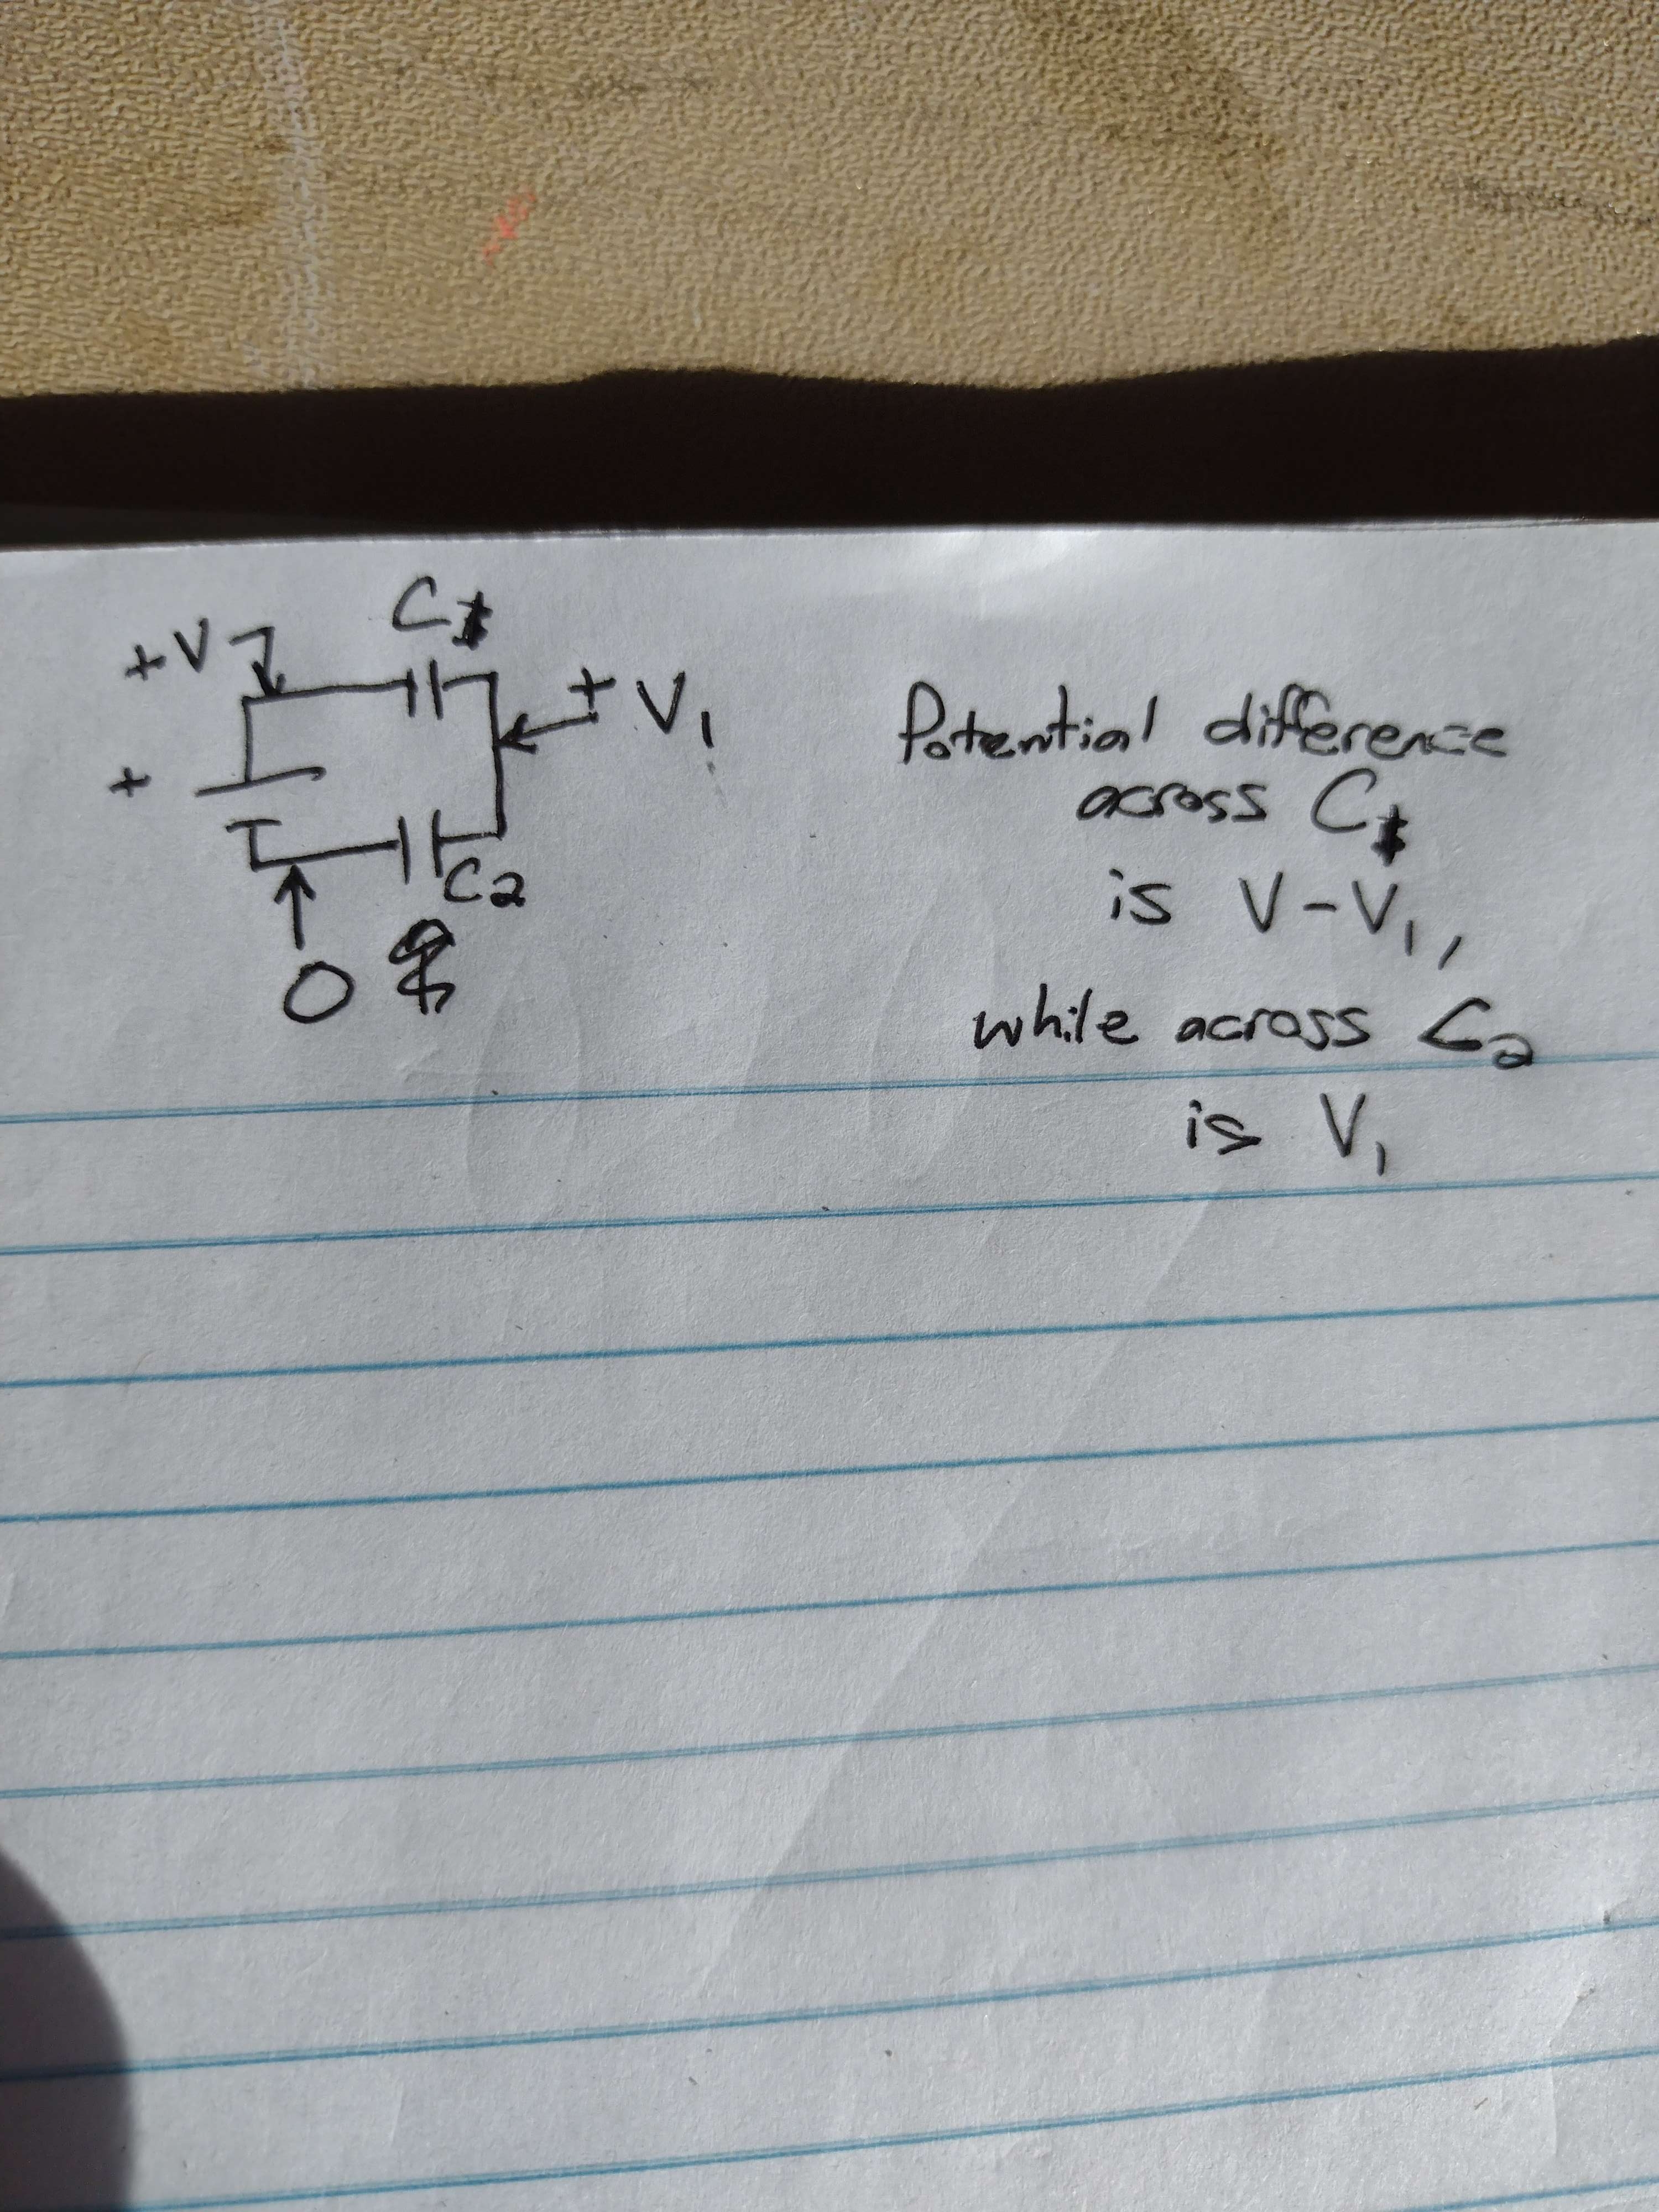 C₁
+V
+ V₁
+
C₂
0
Potential difference
across C₁
is V-V₁,
while across C₂
is V₁